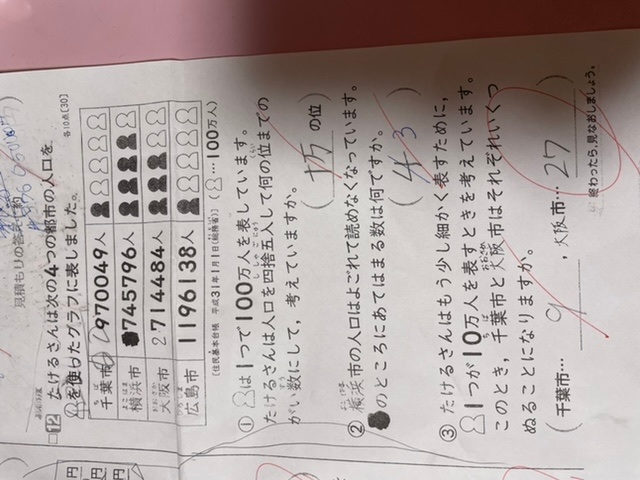 見積もりの答え
各10点[30]
□12 たけるさんは次の4つの都市の人口を、
を使ったグラフに表しました。
千葉市 970049人
横浜市 745796人
大阪市 2714484人
広島市 1196138人
(住民基本台帳 平成31年1月1日(総務省)) ( …100万人)
① は1つで100万人を表しています。
たけるさんは人口を四捨五入して何の位までの
がい数にして、考えていますか。
( 十万 の位 )
② 横浜市の人口はよごれて読めなくなっています。
のところにあてはまる数は何ですか。
( 4 3 )
③ たけるさんはもう少し細かく表すために、
1つが10万人を表すときを考えています。
このとき、千葉市と大阪市はそれぞれいくつ
ぬることになりますか。
( 千葉市… 9 , 大阪市… 27 )
終わったら、見なおしましょう。